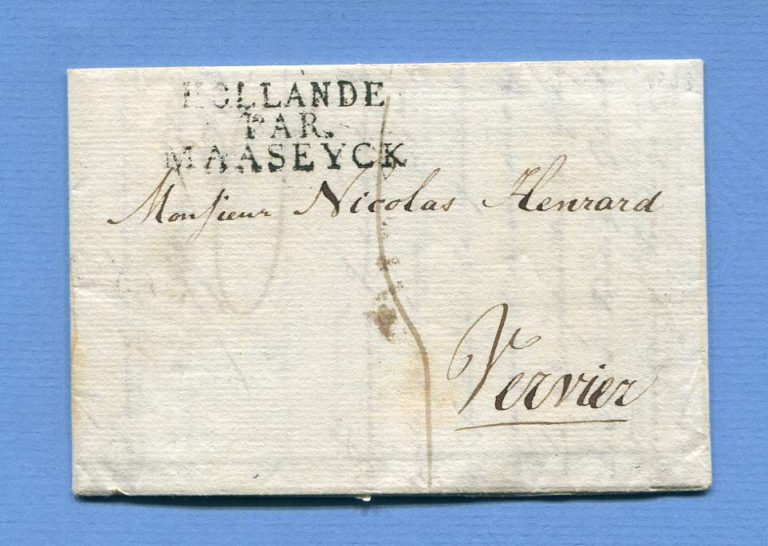 HOLLANDE
PAR.
MAASEYCK
Monsieur Nicolas Henrard
Vervier